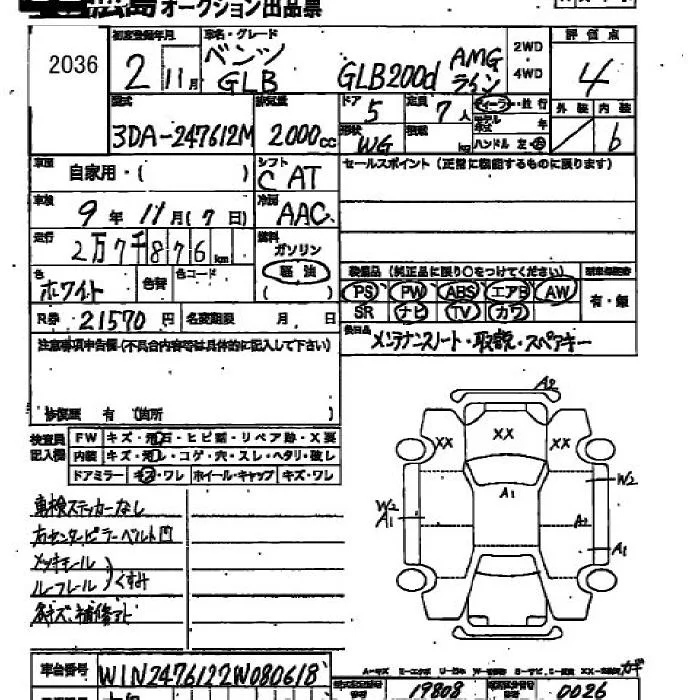 広島 オークション出品票
2036
初度登録年月 車名・グレード 2WD・4WD 評価点
2 11月 ベンツ GLB GLB200d AMGライン 4
型式 排気量 ドア 定員 ディーラー・並行 外装 内装
3DA-247612M 2000cc 5 7人 モデル年式 年 b
形状 WG 積載 kg ハンドル 左・右
車歴 自家用・( ) シフト C AT セールスポイント(正常に機能するものに限ります)
車検 9年11月(7日) 冷房 AAC
走行 2万7千876km 燃料 ガソリン 軽油 ( )
色 ホワイト 色替 色コード
装備品(純正品に限り○をつけてください)
PS PW ABS エアB AW 有・無
SR ナビ TV カワ
R券 21570円 名変期限 月 日
後日品 メンテナンスノート・取説・スペアキー
注意事項申告欄(不具合内容等は具体的に記入して下さい)
修復歴 有 (箇所 )
検査員記入欄 FW キズ・飛石・ヒビ割・リペア跡・X要
内装 キズ・汚レ・コゲ・穴・スレ・ヘタリ・破レ
ドアミラー キズ・ワレ ホイール・キャップ キズ・ワレ
車検ステッカーなし
右センターピラーベルト凹
メッキモール
ルーフレール くすみ
各キズ、補修アト
A2
XX XX XX
A1
W2
W2
A1
A2
A1
車台番号 W1N2476122W080618
19808 0026